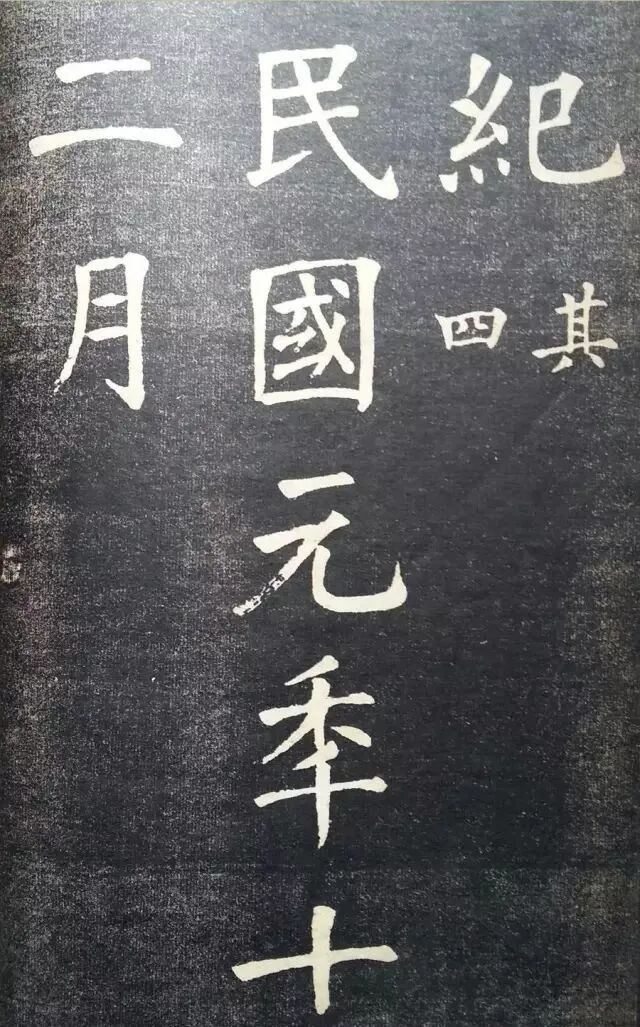 紀其四
民國元秊十
二月